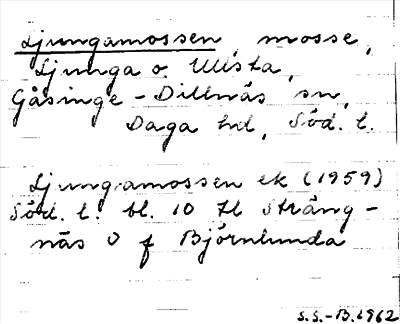 Ljungamossen, mosse,
Ljunga o. Ullsta,
Gåsinge-Dillnäs sn,
Daga hd, Söd. l.
Ljungamossen ek (1959)
Söd. l. bl. 10 Il Sträng-
näs O f Björnlunda
S.S.-B. 1962